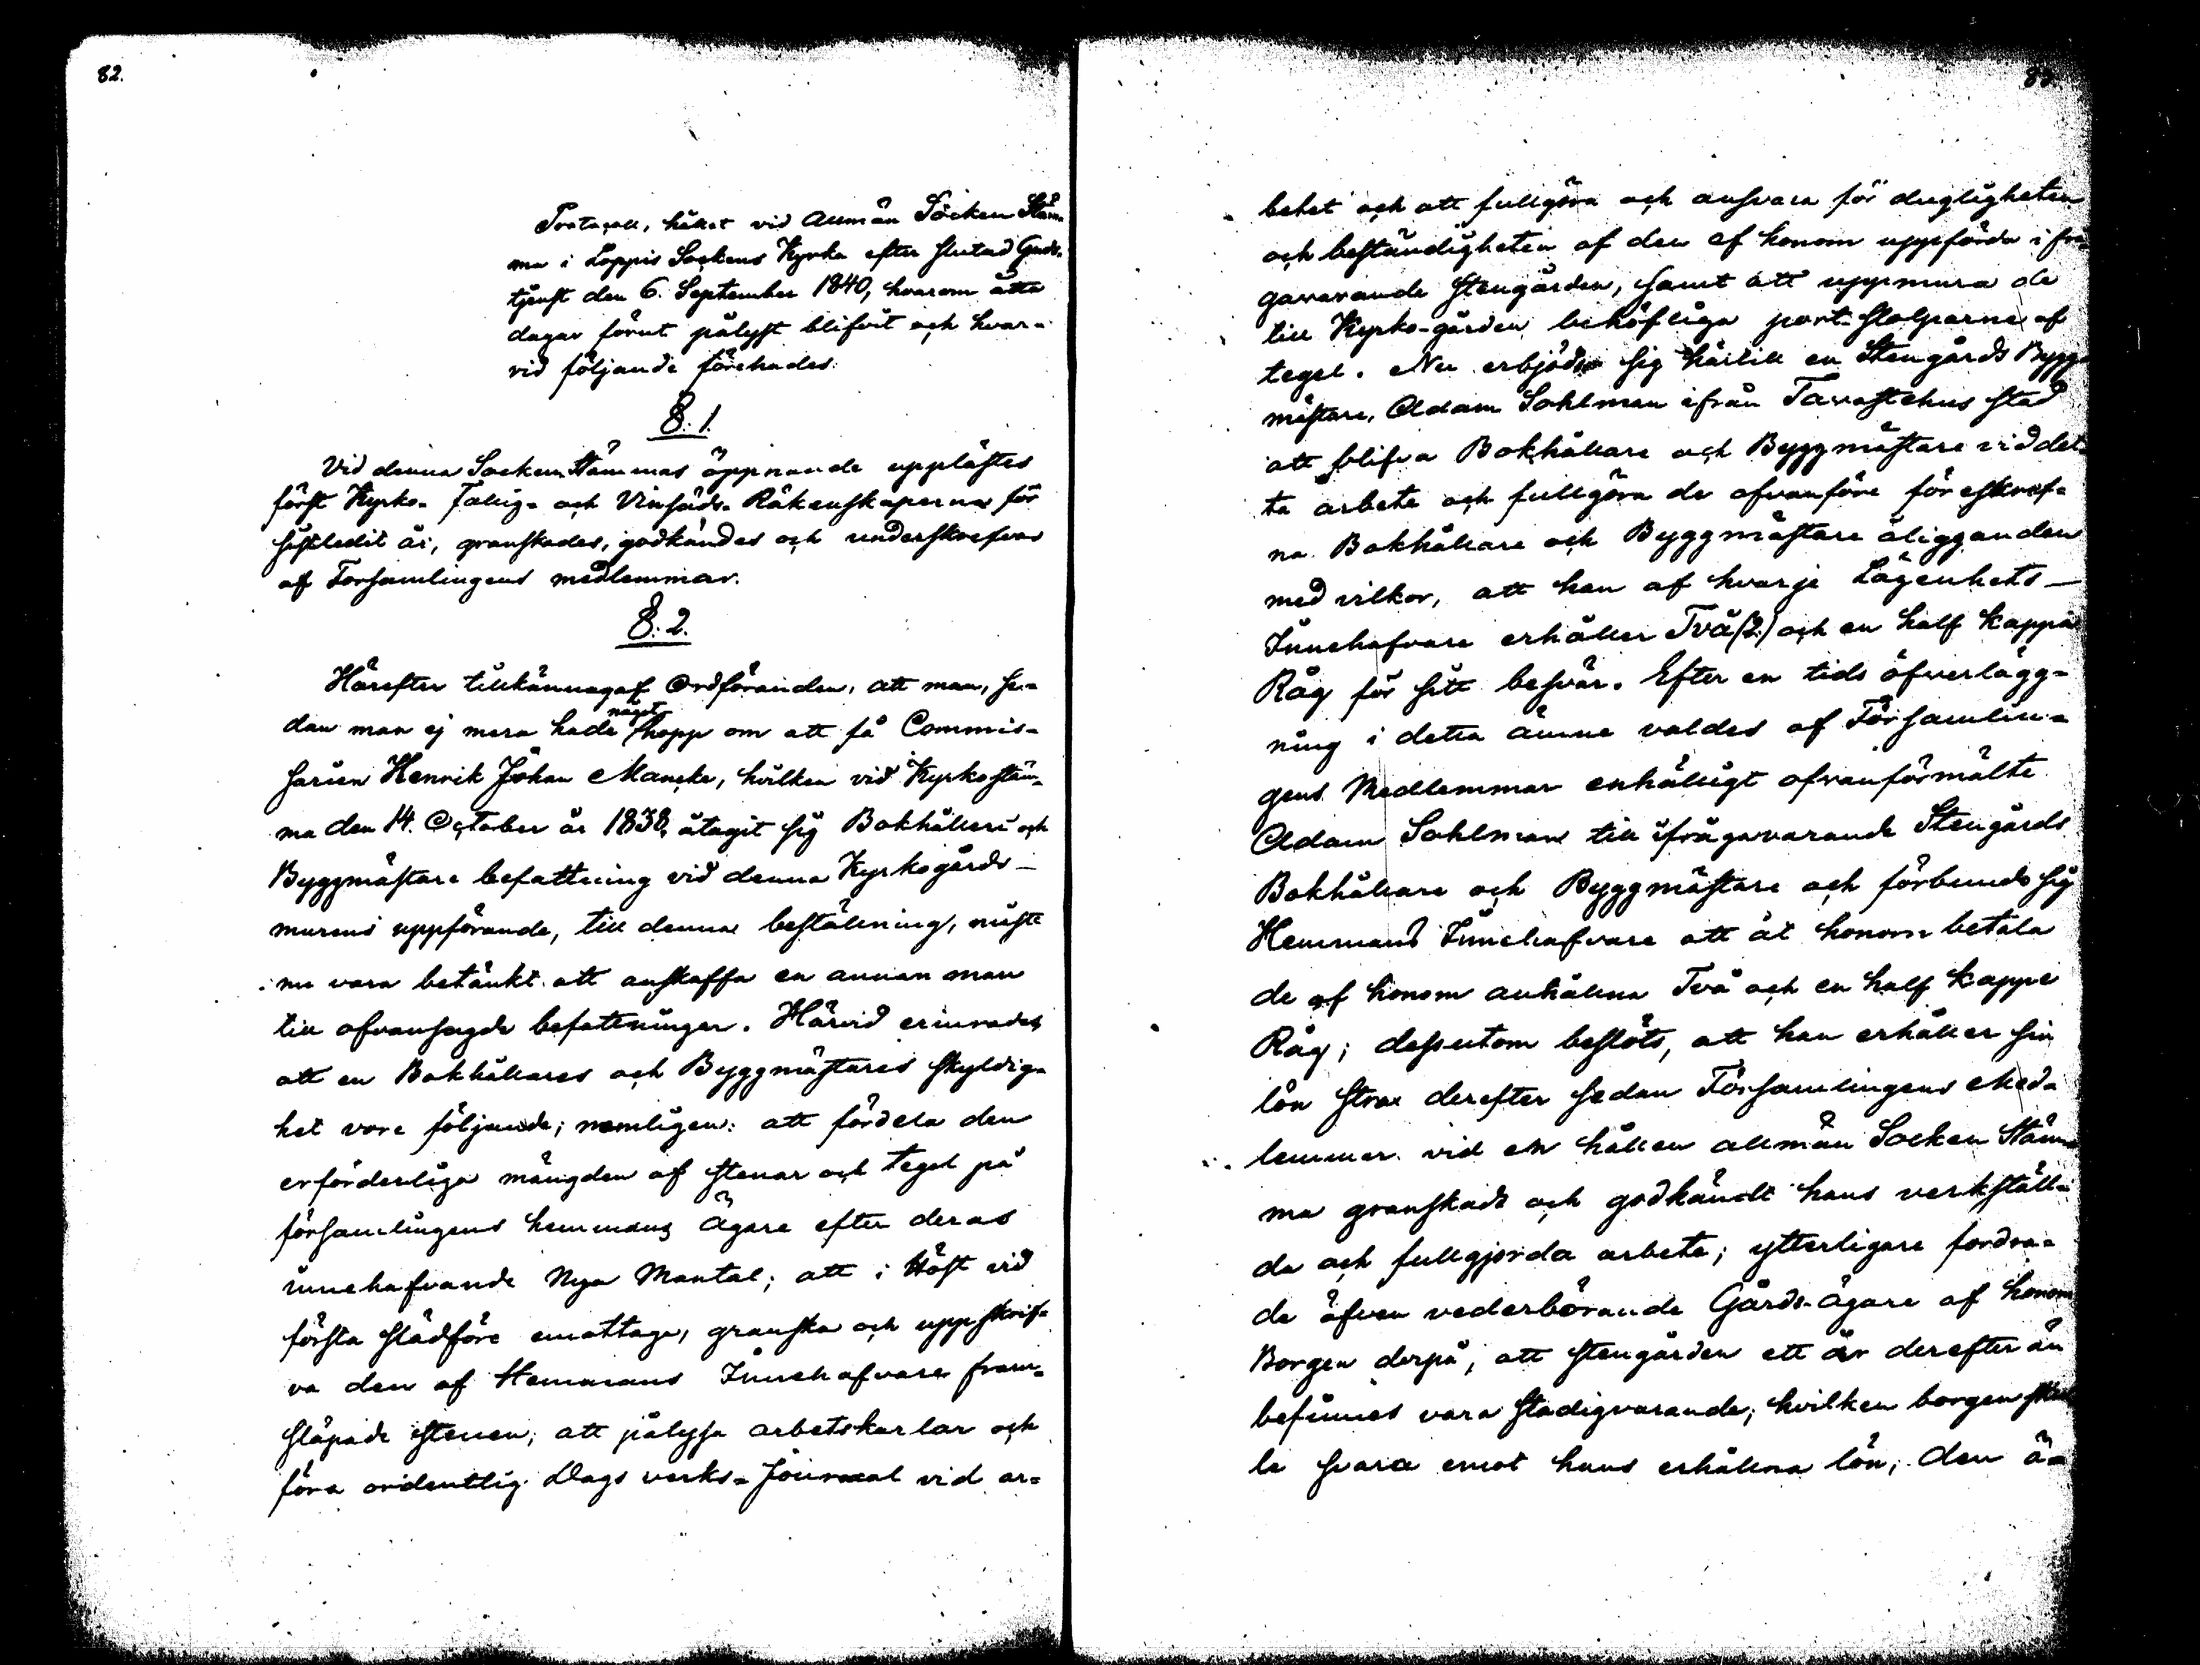 82.
Protocoll, hållet vid Allmän Socken Stäm-
ma i Loppis Sockens Kyrka efter slutad Guds-
tjenst den 6. September 1840, hvarom åtta
dagar förut pålyst blifvit och hvar-
vid följande förehades:
§. 1.
Vid denna Socken Stämmas öppnande upplästes
först Kyrko- Fattig- och Vinsäds- Räkenskaperna för
sistledit år, granskades, godkändes och underskrefvos
af Församlingens medlemmar.
§. 2.
Härefter tillkännagaf Ordföranden, att man, se-
dan man ej mera hade något hopp om att få Commis-
sarien Henrik Johan Mancke, hvilken vid Kyrkostäm-
ma den 14. October år 1838, åtagit sig Bokhålleri och
Byggmästare befattning vid denna Kyrkogårds-
murens uppförande, till denna beställning, måste
nu vara betänkt att anskaffa en annan man
till ofvansagde befattningar. Härvid erinrades
att en Bokhållares och Byggmästares skyldig-
het vore följande; nemligen: att fördela den
erforderliga mängden af stenar och tegel på
församlingens hemmans Ägare efter deras
innehafvande Nya Mantal; att i Höst vid
första slädföre emottaga, granska och uppskrif-
va den af Hemmans Innehafvare fram-
släpade stenen; att pålysa arbetskarlar och
föra ordentlig Dags verks- Journal vid ar-
83.
betet och att fullgöra och ansvara för dugligheten
och beständigheten af den af honom uppförda i frå-
gavarande stengården, samt att uppmura de
till Kyrko-gården behöfliga port-stolparne af
tegel. Nu erbjöd sig härtill en Stengårds Bygg-
mästare, Adam Sahlman ifrån Tavastehus stad
att blifva Bokhållare och Byggmästare vid det-
ta arbete och fullgöra de ofvanföre föreskref-
na Bokhållare och Byggmästare åligganden
med vilkor, att han af hvarje Lägenhets-
Innehafvare erhåller Två (2.) och en half kappe
Råg för sitt besvär. Efter en tids öfverlägg-
ning i detta ämne valdes af Församlin-
gens Medlemmar enhälligt ofvanförmälte
Adam Sahlman till ifrågavarande Stengårds
Bokhållare och Byggmästare och förbundo sig
Hemmans Innehafvare att åt honom betala
de af honom anhållna Två och en half kappe
Råg; dessutom beslöts, att han erhåller sin
lön strax derefter sedan Församlingens Med-
lemmar vid en hållen allmän Socken Stäm-
ma granskadt och godkändt hans verkställ-
da och fullgjorda arbete; ytterligare fordra-
de äfven vederbörande Gårds-ägare af honom
Borgen derpå, att stengården ett år derefter än
befinnes vara stadigvarande; hvilken borgen skul-
le svara emot hans erhållna lön, den å-